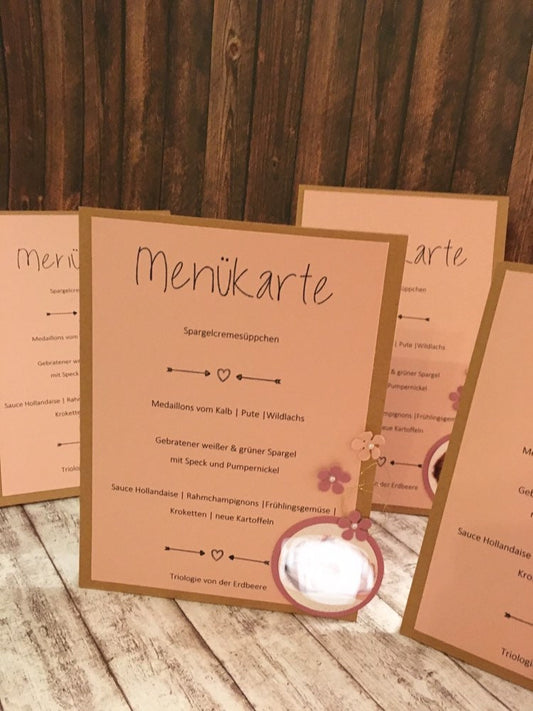 Menükarte
Spargelcremesüppchen
Medaillons vom Kalb | Pute |Wildlachs
Gebratener weißer & grüner Spargel
mit Speck und Pumpernickel
Sauce Hollandaise | Rahmchampignons |Frühlingsgemüse |
Kroketten | neue Kartoffeln
Triologie von der Erdbeere
Menü
Spargelcre
Medaillons vom
Gebratener we
mit Speck
Sauce Hollandaise | Rahm
Kroketten
Triolog
karte
üppchen
| Pute |Wildlachs
& grüner Spargel
Pumpernickel
mpignons |Frühlingsgem
neue Kartoffeln
der Erdbeere
Me
Geb
Sauce Hollandaise
Kro
Triolog